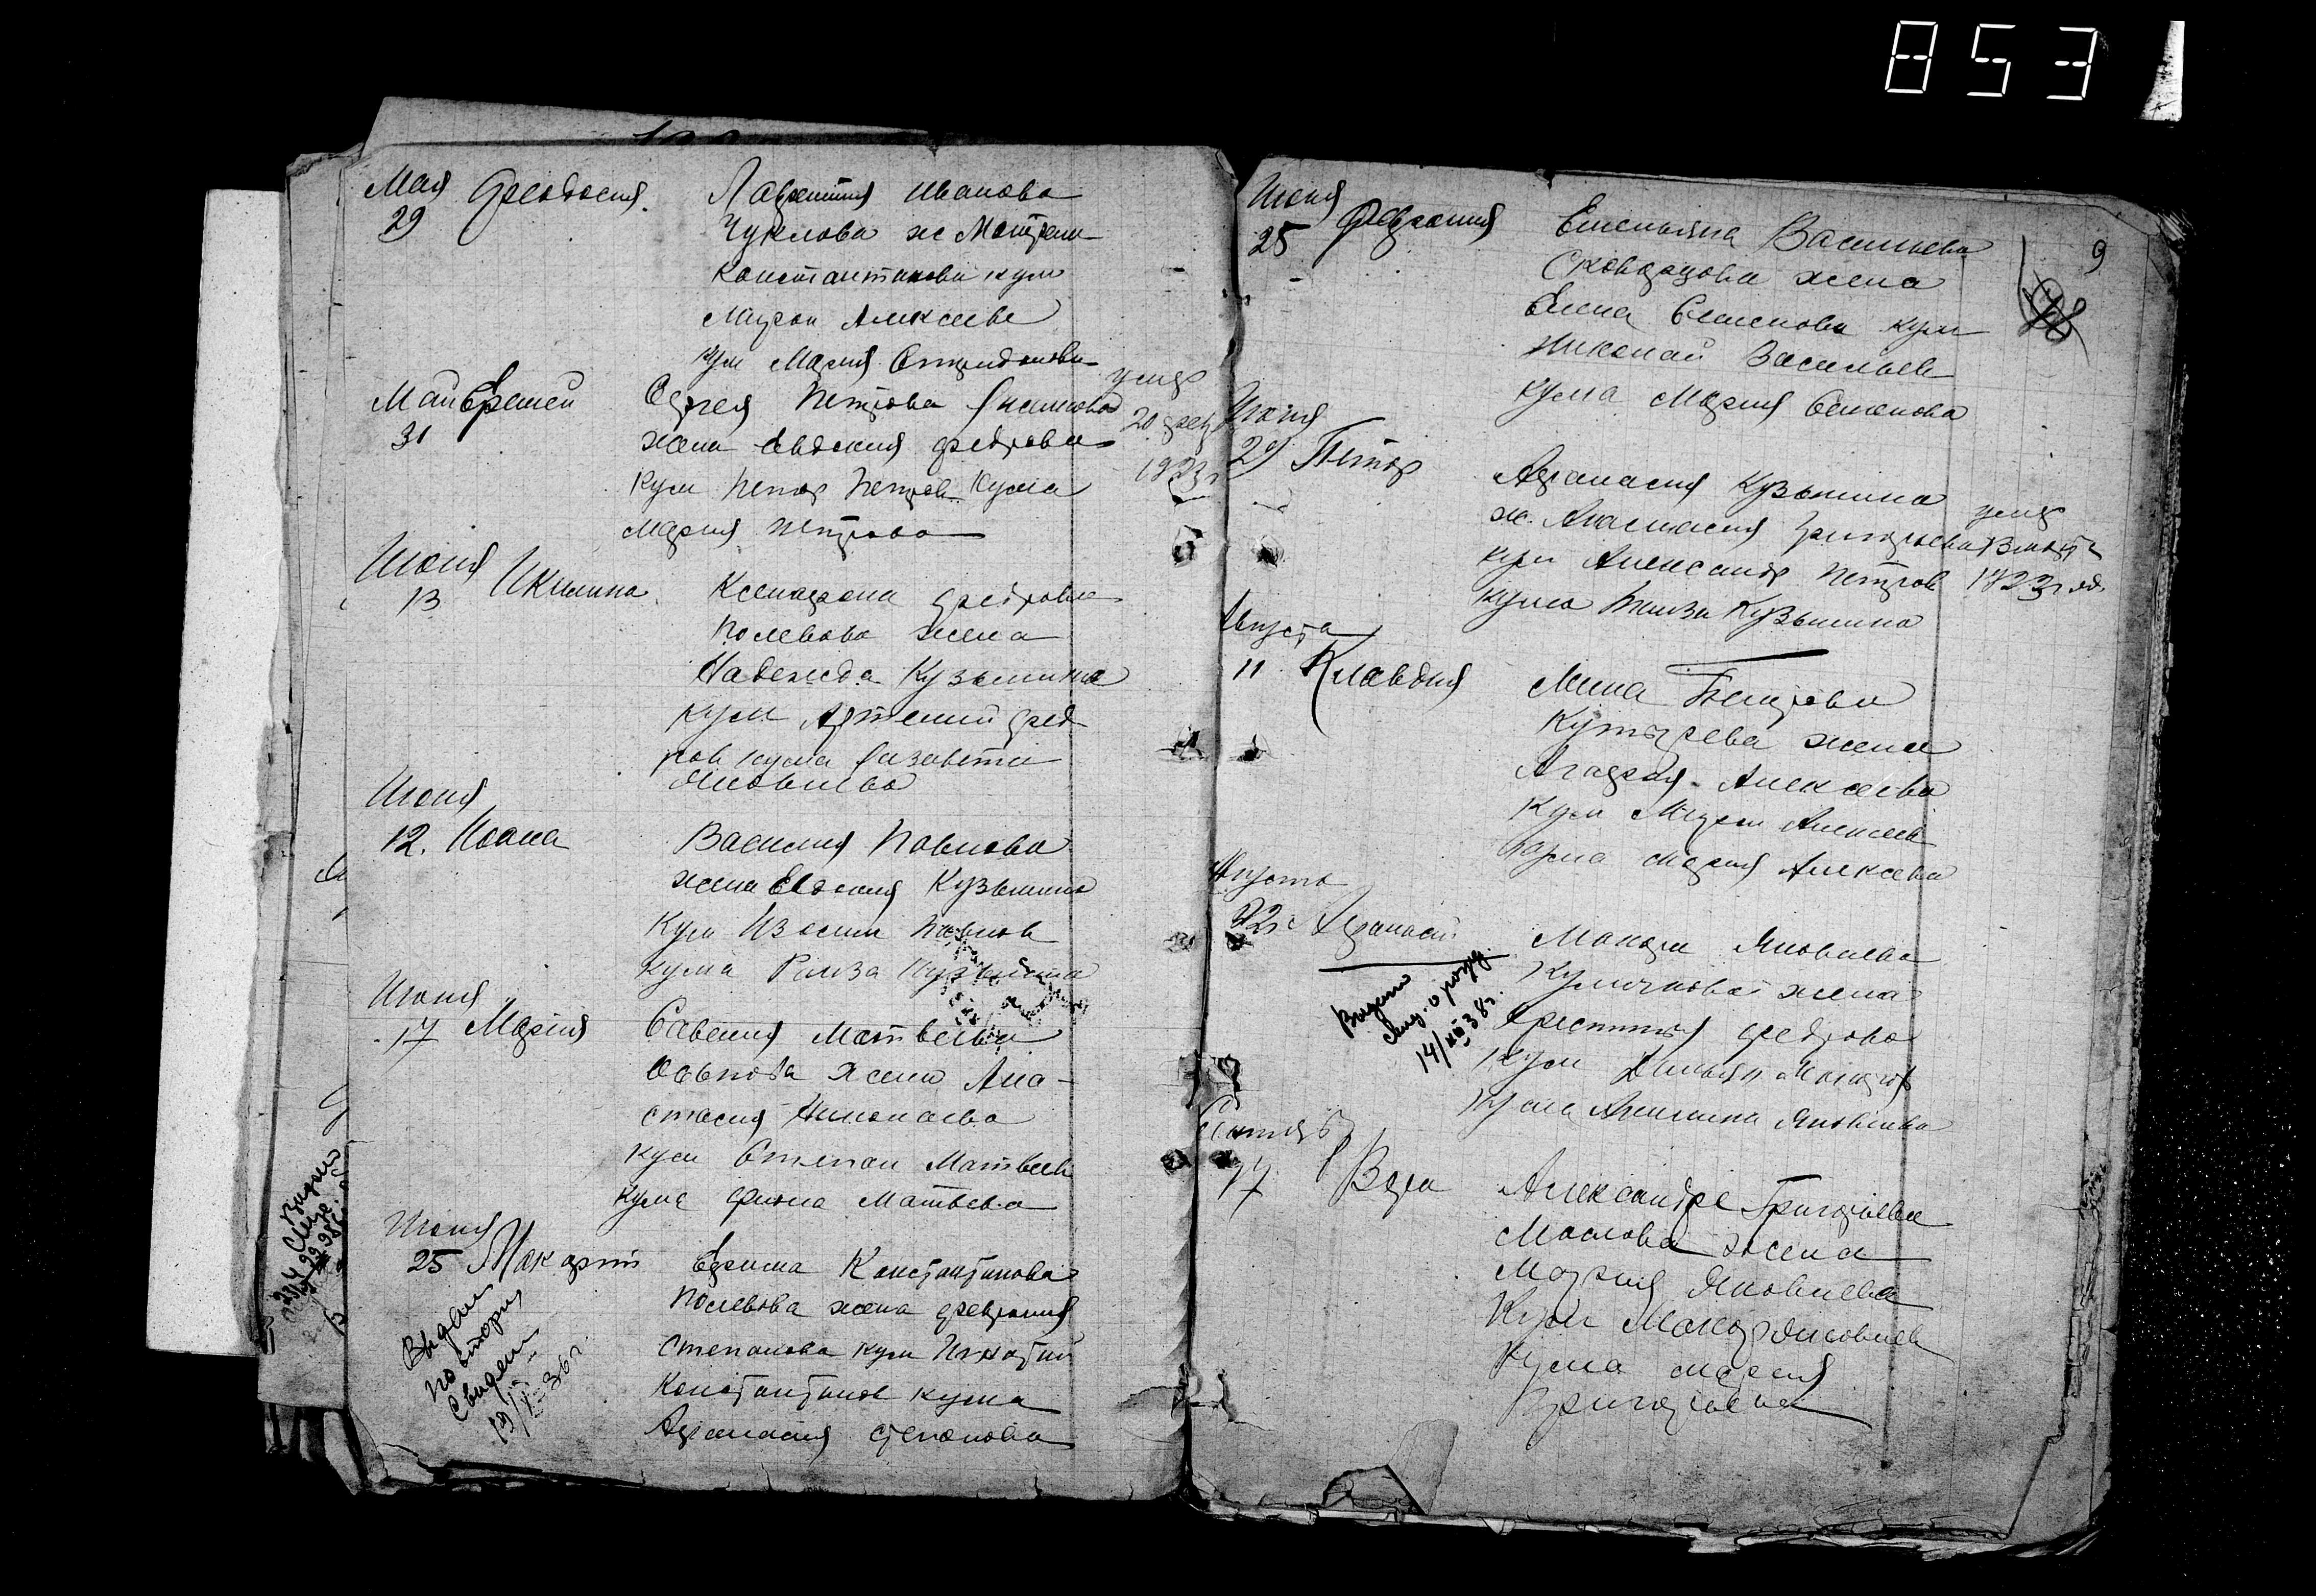 853
Мая Феодосия. Лаврентия Иванова
29 Чуклова ж Матрена
Константинова кум
Мирон Алексеев
кум Мария Спиридонова
Май Еремей Сергея Петрова
31 жена Евдокия Федрова
кум Петр Петров Кума
Мария Петрова
умер
20 
1923 г
Июня
13 Акилина Ксенофона Федрова
Полевова жена
Надежда Кузьмина
кум Артемий Фед
ров кума Лизавета
Яковлева
Июня
12. Иоана Василия Павлова
жена Евдокия Кузьмина
Кум Изосим Павлов
кума
Июня
17 Мария Савелия Матвеева
Оськова жена Ана-
стасия Николаева
кум Степан Матвеев
кума Фиона Матвева
Июня
25 Макарий Ефима Константинова
Полевова жена Феврония
Степанова кум Игнатий
Константинов кума
Афанасия Степанова
Выдан
повторн
свидет
19/ 36 г
Июня
25 Феврония Емельяна Васильева
Сковрцова жена
Елена Семенова кум
Николай Васильев
кума Мария Семенова
9
Июня
29 Петр Афанасия Кузьмина
ж. Анастасия Григорьева
кум Александр Петров
кума Кузьмина
умер
1923 г
Августа
11 Клавдия Мина Петрова
Кутырева жена
Агафия Алексеева
Кум Мирон Алексеев
Кума Мария Алексева
Августа
22 Афанасий Макара Яковлева
Куличкова жена
Федрова
кум Макаров
кума Акилина Яковлева
Выдано
свид. о рожд.
14/ 38 г.
Сентяб
17 Вера Александре Григорьева
Маслова жена
Мария Яковлева
Кум Макар Яковлев
Кума Мария
Григорьева